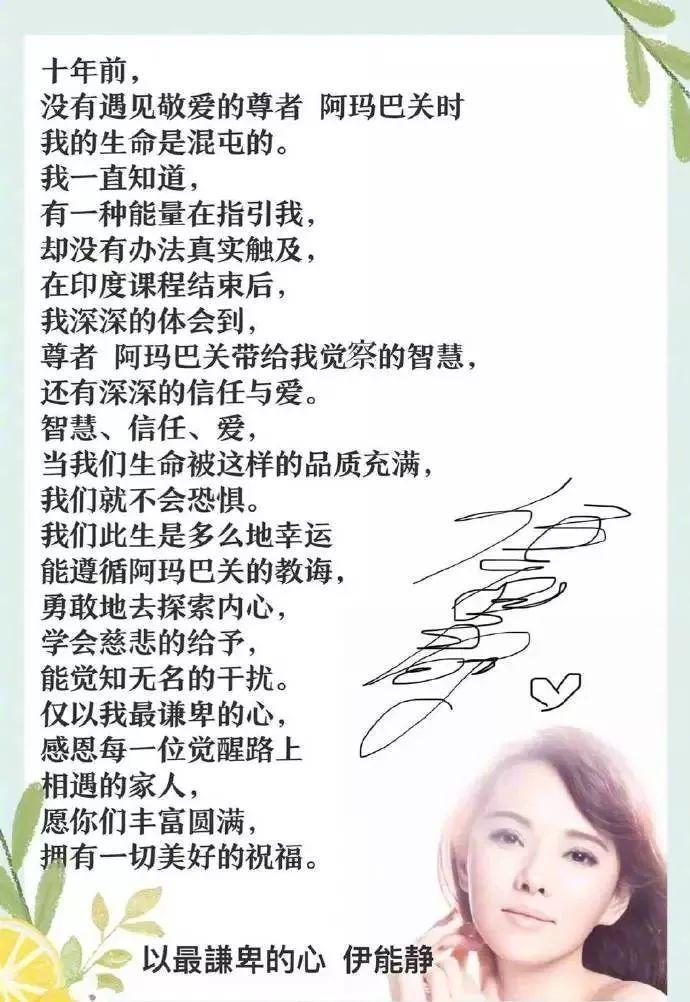 十年前，
没有遇见敬爱的尊者 阿玛巴关时
我的生命是混屯的。
我一直知道，
有一种能量在指引我，
却没有办法真实触及，
在印度课程结束后，
我深深的体会到，
尊者 阿玛巴关带给我觉察的智慧，
还有深深的信任与爱。
智慧、信任、爱，
当我们生命被这样的品质充满，
我们就不会恐惧。
我们此生是多么地幸运
能遵循阿玛巴关的教诲，
勇敢地去探索内心，
学会慈悲的给予，
能觉知无名的干扰。
仅以我最谦卑的心，
感恩每一位觉醒路上
相遇的家人，
愿你们丰富圆满，
拥有一切美好的祝福。
以最謙卑的心 伊能静